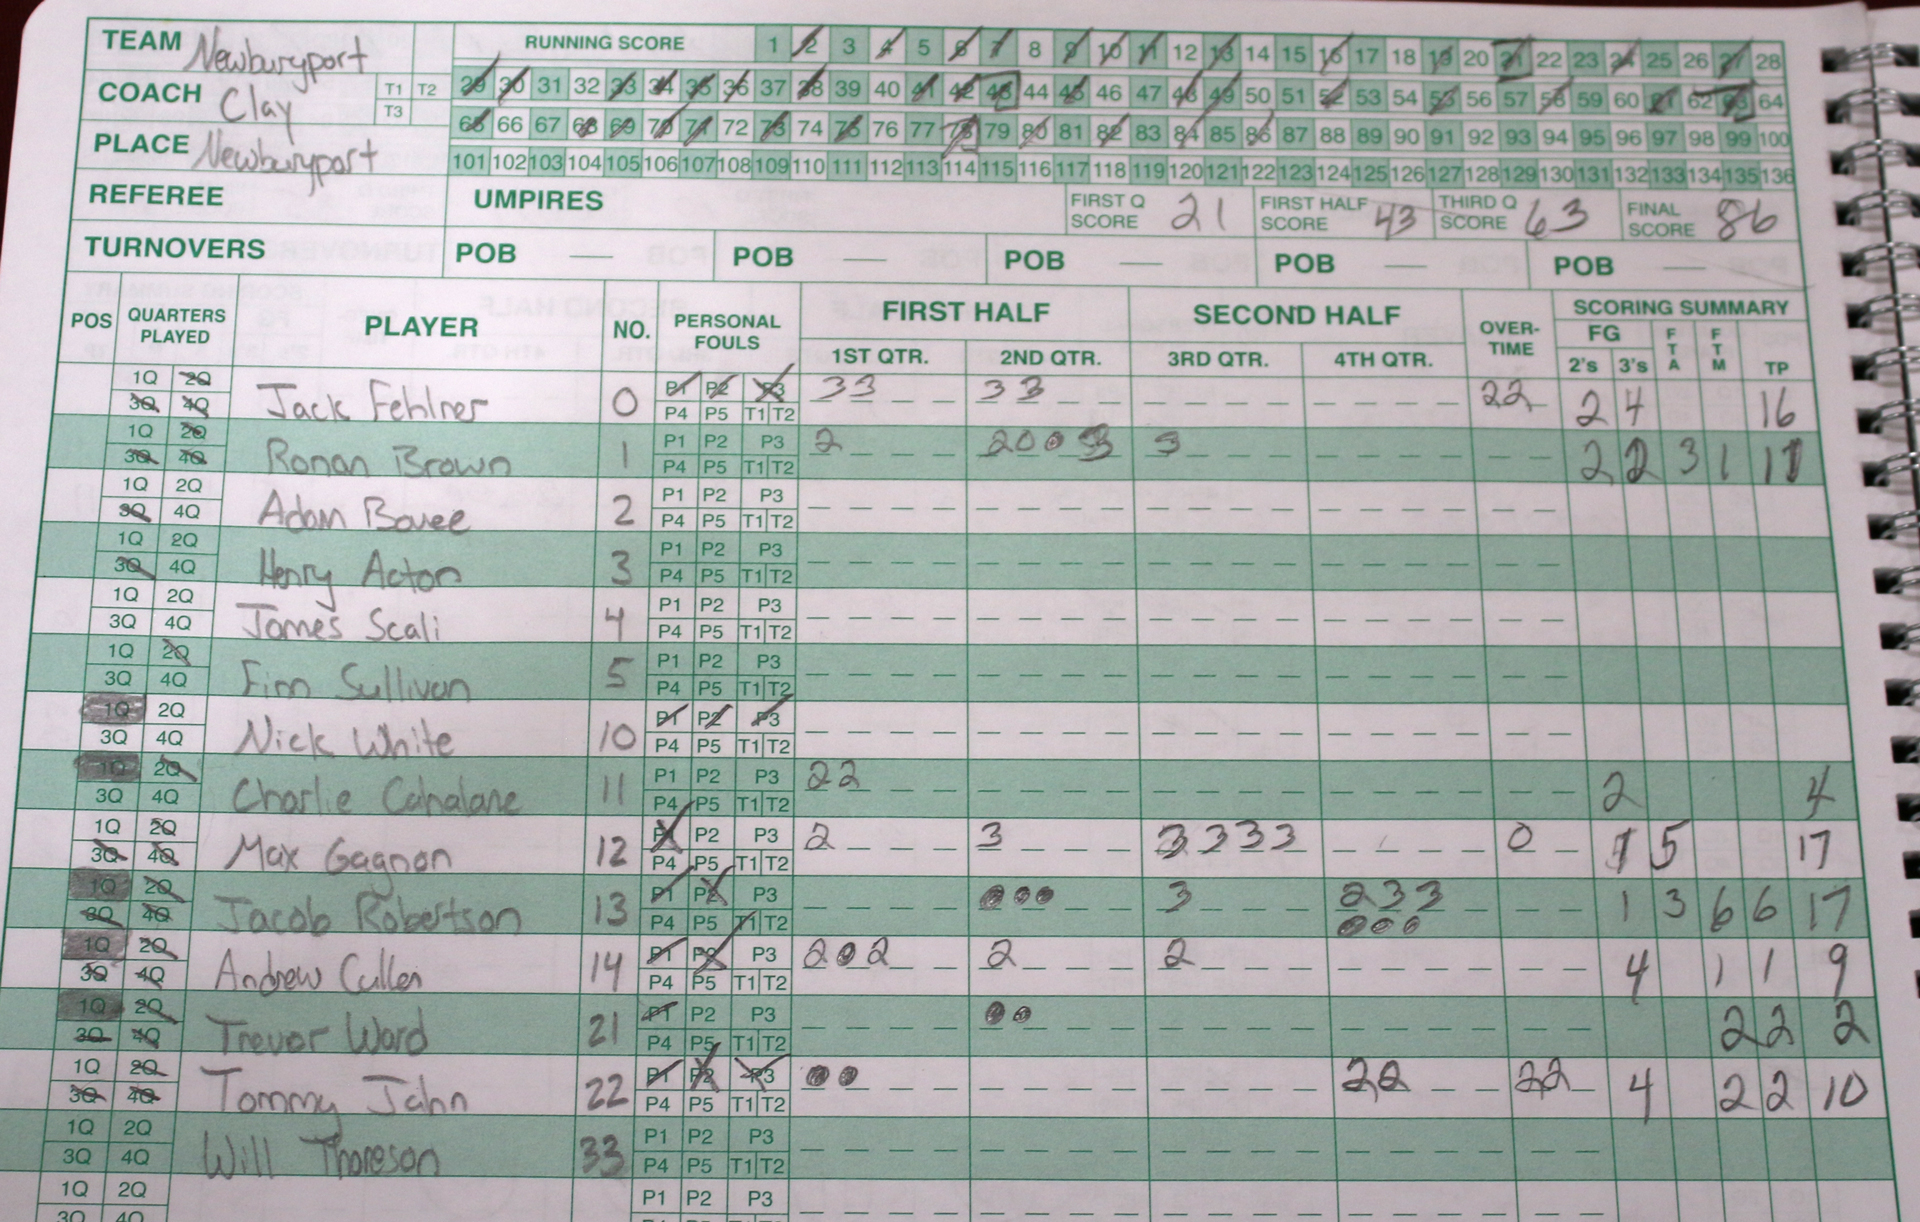 TEAM Newburyport RUNNING SCORE 1 2 3 4 5 6 7 8 9 10 11 12 13 14 15 16 17 18 19 20 21 22 23 24 25 26 27 28
COACH Clay T1 T2 T3 29 30 31 32 33 34 35 36 37 38 39 40 41 42 43 44 45 46 47 48 49 50 51 52 53 54 55 56 57 58 59 60 61 62 63 64
65 66 67 68 69 70 71 72 73 74 75 76 77 78 79 80 81 82 83 84 85 86 87 88 89 90 91 92 93 94 95 96 97 98 99 100
PLACE Newburyport 101 102 103 104 105 106 107 108 109 110 111 112 113 114 115 116 117 118 119 120 121 122 123 124 125 126 127 128 129 130 131 132 133 134 135 136
REFEREE UMPIRES FIRST Q SCORE 21 FIRST HALF SCORE 43 THIRD Q SCORE 63 FINAL SCORE 86
TURNOVERS POB POB POB POB POB
POS QUARTERS PLAYED PLAYER NO. PERSONAL FOULS FIRST HALF SECOND HALF OVER-TIME SCORING SUMMARY
1ST QTR. 2ND QTR. 3RD QTR. 4TH QTR. FG 2's 3's FTA FTM TP
1Q 2Q 3Q 4Q Jack Fehlner 0 P1 P2 P3 P4 P5 T1 T2 33 33 22 2 4 16
1Q 2Q 3Q 4Q Ronan Brown 1 P1 P2 P3 P4 P5 T1 T2 2 20 3 3 2 2 3 1 11
1Q 2Q 3Q 4Q Adam Bovee 2 P1 P2 P3 P4 P5 T1 T2
1Q 2Q 3Q 4Q Henry Acton 3 P1 P2 P3 P4 P5 T1 T2
1Q 2Q 3Q 4Q James Scali 4 P1 P2 P3 P4 P5 T1 T2
1Q 2Q 3Q 4Q Finn Sullivan 5 P1 P2 P3 P4 P5 T1 T2
1Q 2Q 3Q 4Q Nick White 10 P1 P2 P3 P4 P5 T1 T2
1Q 2Q 3Q 4Q Charlie Cahalane 11 P1 P2 P3 P4 P5 T1 T2 22 2 4
1Q 2Q 3Q 4Q Max Gagnon 12 P1 P2 P3 P4 P5 T1 T2 2 3 3333 0 1 5 17
1Q 2Q 3Q 4Q Jacob Robertson 13 P1 P2 P3 P4 P5 T1 T2 3 233 1 3 6 6 17
1Q 2Q 3Q 4Q Andrew Cullen 14 P1 P2 P3 P4 P5 T1 T2 202 2 2 4 1 1 9
1Q 2Q 3Q 4Q Trevor Ward 21 P1 P2 P3 P4 P5 T1 T2 2 2 2
1Q 2Q 3Q 4Q Tommy Jahn 22 P1 P2 P3 P4 P5 T1 T2 22 22 4 2 2 10
1Q 2Q 3Q 4Q Will Thoreson 33 P1 P2 P3 P4 P5 T1 T2
1Q 2Q 3Q 4Q P1 P2 P3